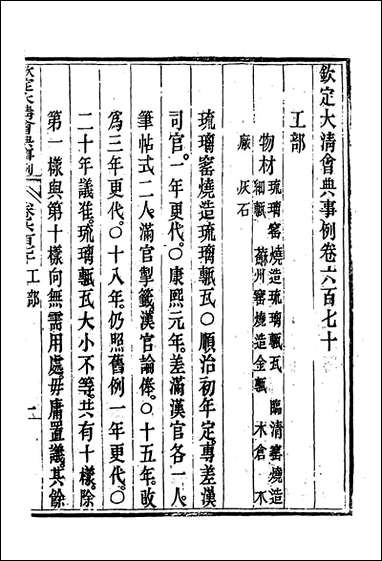 欽定大清會典事例卷六百七十
工部
物材 琉璃窰燒造琉璃甎瓦 臨清窰燒造
細甎 蘇州窰燒造金甎 木倉 木
廠 灰石
琉璃窰燒造琉璃甎瓦○順治初年定。專差漢
司官一年更代。○康熙元年。差滿漢官各一人。
筆帖式二人。滿官掣籤。漢官論俸。○十五年。改
爲三年更代。○十八年。仍照舊例一年更代。○
二十年議准。琉璃甎瓦。大小不等。共有十樣。除
第一樣與第十樣。向無需用處。毋庸置議。其餘
欽定大清會典事例 工部 一